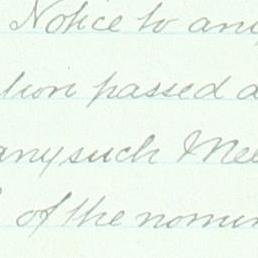 Notice to any
tion passed a
any such Mee
of the nomin